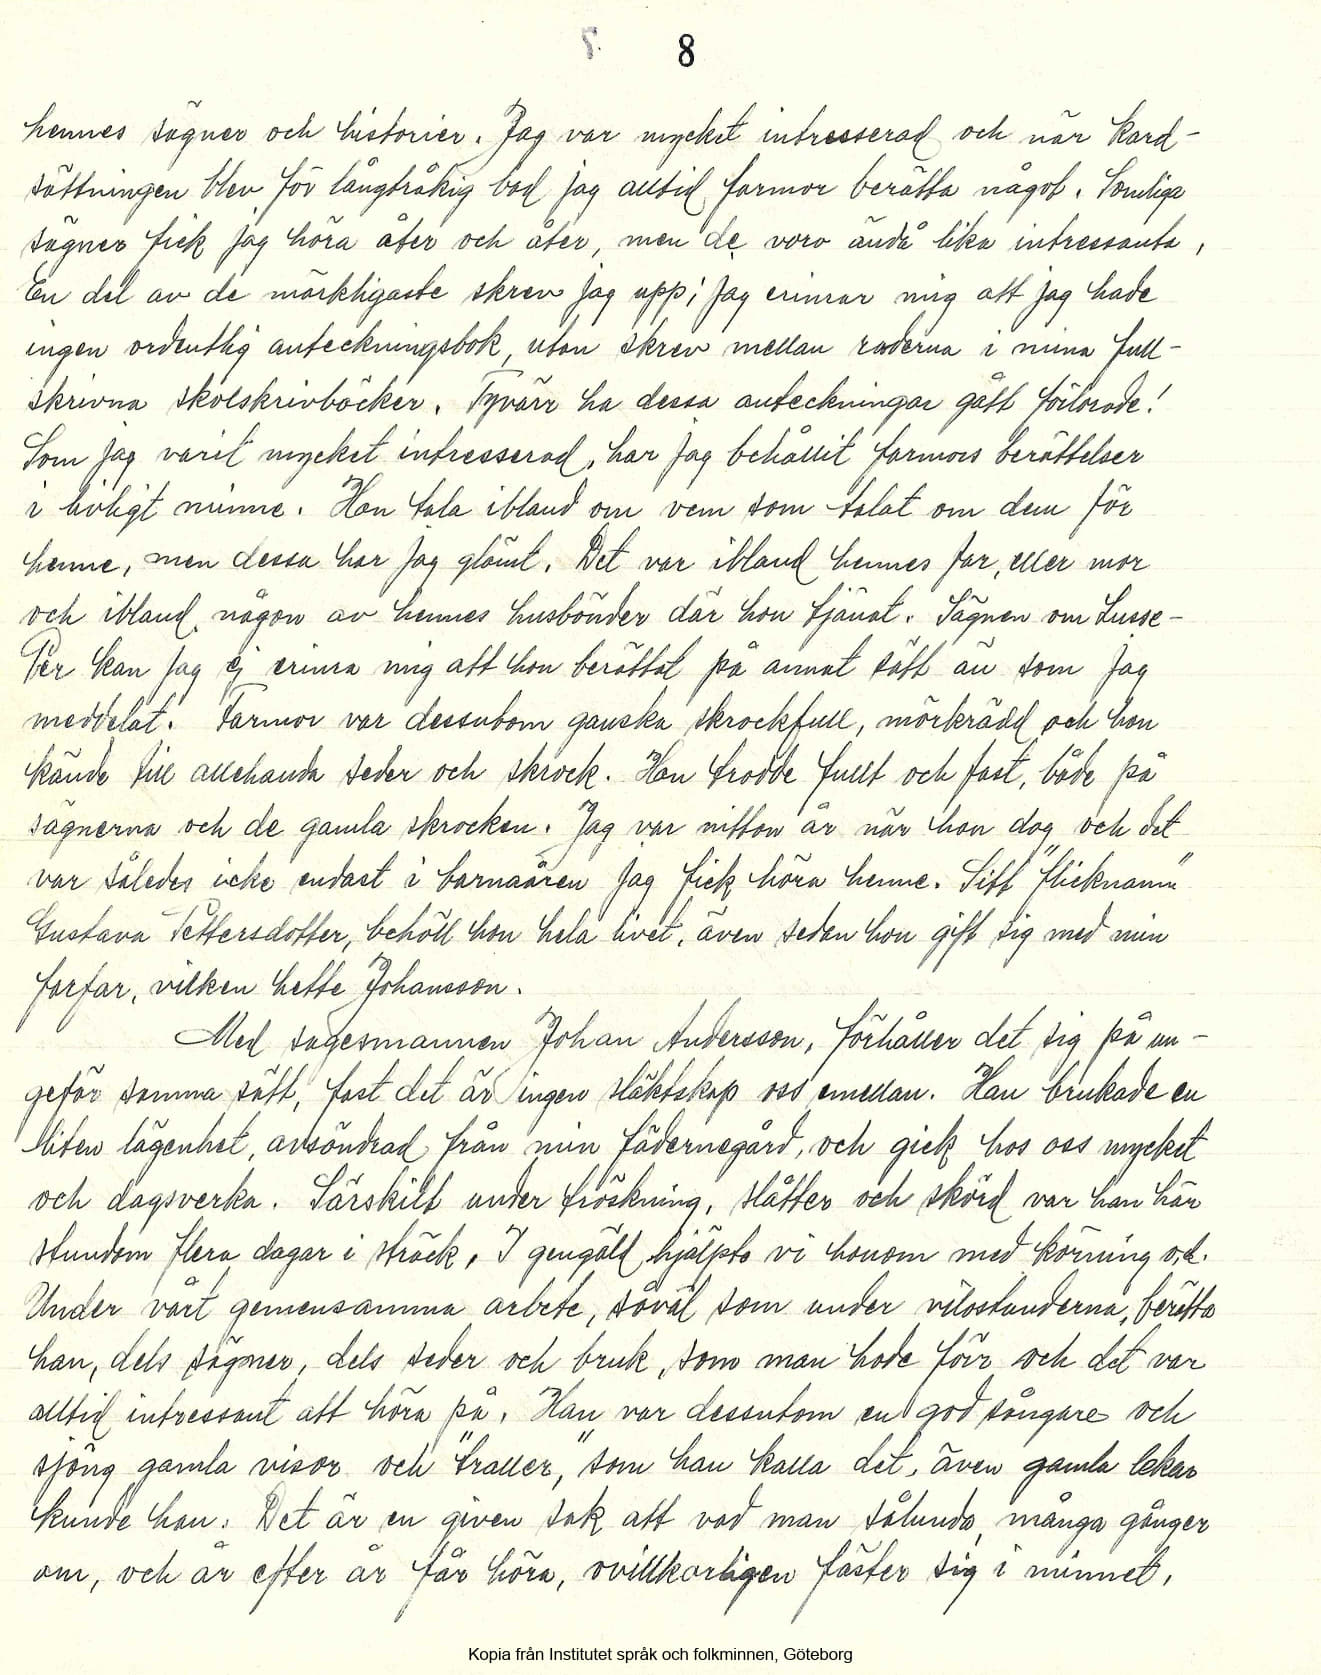 8
hennes sägner och historier. Jag var mycket intresserad och när kard-
sättningen blev för långtråkig bad jag alltid farmor berätta något. Somliga
sägner fick jag höra åter och åter, men de voro ändå lika intressanta.
En del av de märkligaste skrev jag upp; jag erinrar mig att jag hade
ingen ordentlig anteckningsbok, utan skrev mellan raderna i mina full-
skrivna skolskrivböcker. Tyvärr ha dessa anteckningar gått förlorade!
Som jag varit mycket intresserad, har jag behållit farmors berättelser
i livligt minne. Hon tala ibland om vem som talat om dem för
henne, men dessa har jag glömt. Det var ibland hennes far, eller mor
och ibland någon av hennes husbönder där hon tjänat. Sägnen om Lusse-
Per kan jag ej erinra mig att hon berättat på annat sätt än som jag
meddelat. Farmor var dessutom ganska skrockfull, mörkrädd och hon
kände till allehanda seder och skrock. Hon trodde fullt och fast, både på
sägnerna och de gamla skrocken. Jag var nitton år när hon dog och det
var således icke endast i barnaåren jag fick höra henne. Sitt "flicknamn"
Gustava Pettersdotter, behöll hon hela livet, även sedan hon gift sig med min
farfar, vilken hette Johansson.
Med sagesmannen Johan Andersson, förhåller det sig på un-
gefär samma sätt, fast det är ingen släktskap oss emellan. Han brukade en
liten lägenhet, avsöndrad från min fädernegård, och gick hos oss mycket
och dagsverka. Särskilt under tröskning, slåtter och skörd var han här
stundom flera dagar i sträck. I gengäld hjälpte vi honom med körning o.d.
Under vårt gemensamma arbete, såväl som under vilostunderna, berätta
han, dels sägner, dels seder och bruk, som man hade förr och det var
alltid intressant att höra på. Han var dessutom en god sångare och
sjöng gamla visor och "traller," som han kalla det, även gamla lekar
kunde han. Det är en given sak att vad man sålunda, många gånger
om, och år efter år får höra, ovillkorligen fäster sig i minnet.
Kopia från Institutet språk och folkminnen, Göteborg